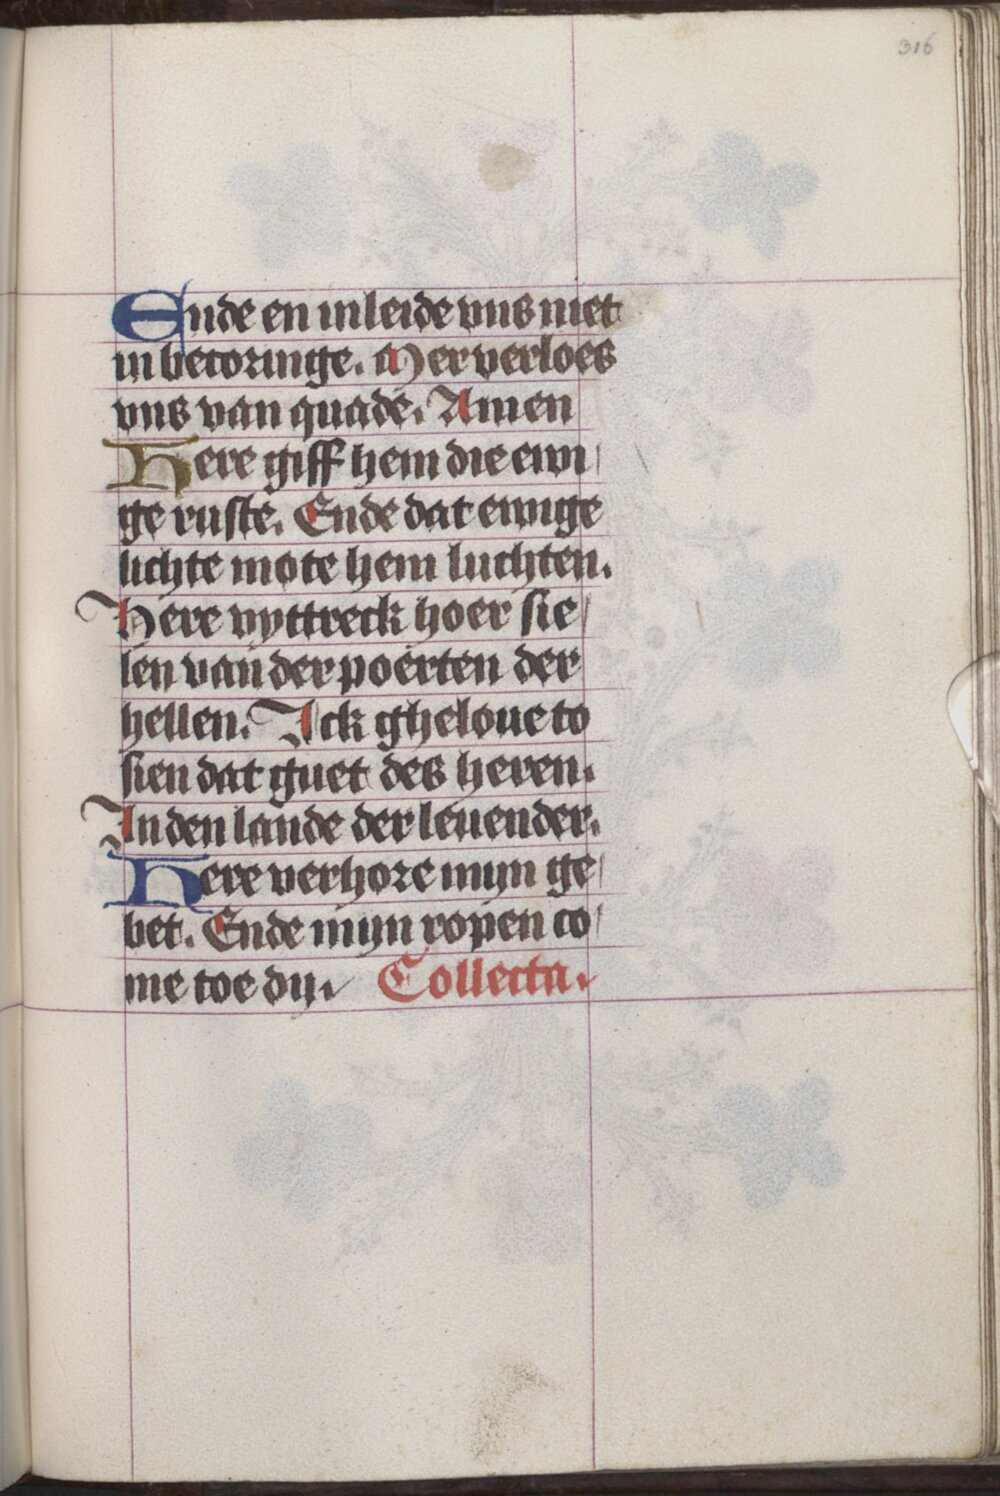 316
Ende en inleide vns niet
in becoringe. Mer verloes
vns van quade. Amen
Here giff hem die ewi
ge ruste. Ende dat ewige
lichte mote hem luchten.
Here vyttreck hoer sie
len van der poerten der
hellen. Ick gheloue to
sien dat guet des heren.
In den lande der leuender.
Here verhore mijn ge
bet. Ende mijn ropen co
me toe dy. Collecta.